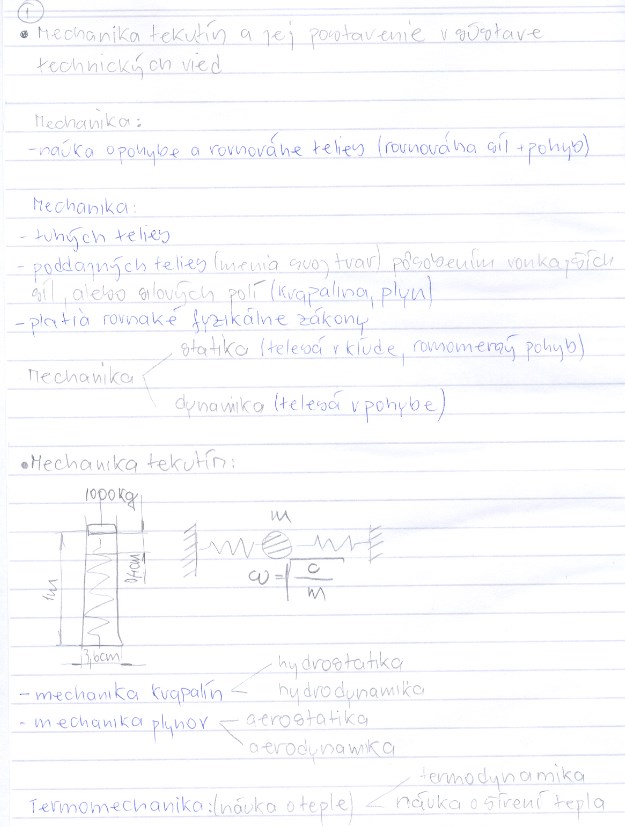 1
• Mechanika tekutín a jej postavenie v sústave
technických vied
Mechanika:
- náuka o pohybe a rovnováhe telies (rovnováha síl + pohyb)
Mechanika:
- tuhých telies
- poddajných telies (menia svoj tvar) pôsobením vonkajších
síl, alebo silových polí (kvapalina, plyn)
- platia rovnaké fyzikálne zákony
statika (telesá v kľude, rovnomerný pohyb)
Mechanika
dynamika (telesá v pohybe)
• Mechanika tekutín:
1000kg
m
1m
ω = √c/m
3,6cm
hydrostatika
- mechanika kvapalín
hydrodynamika
- mechanika plynov
aerostatika
aerodynamika
termodynamika
Termomechanika: (náuka o teple)
náuka o šírení tepla